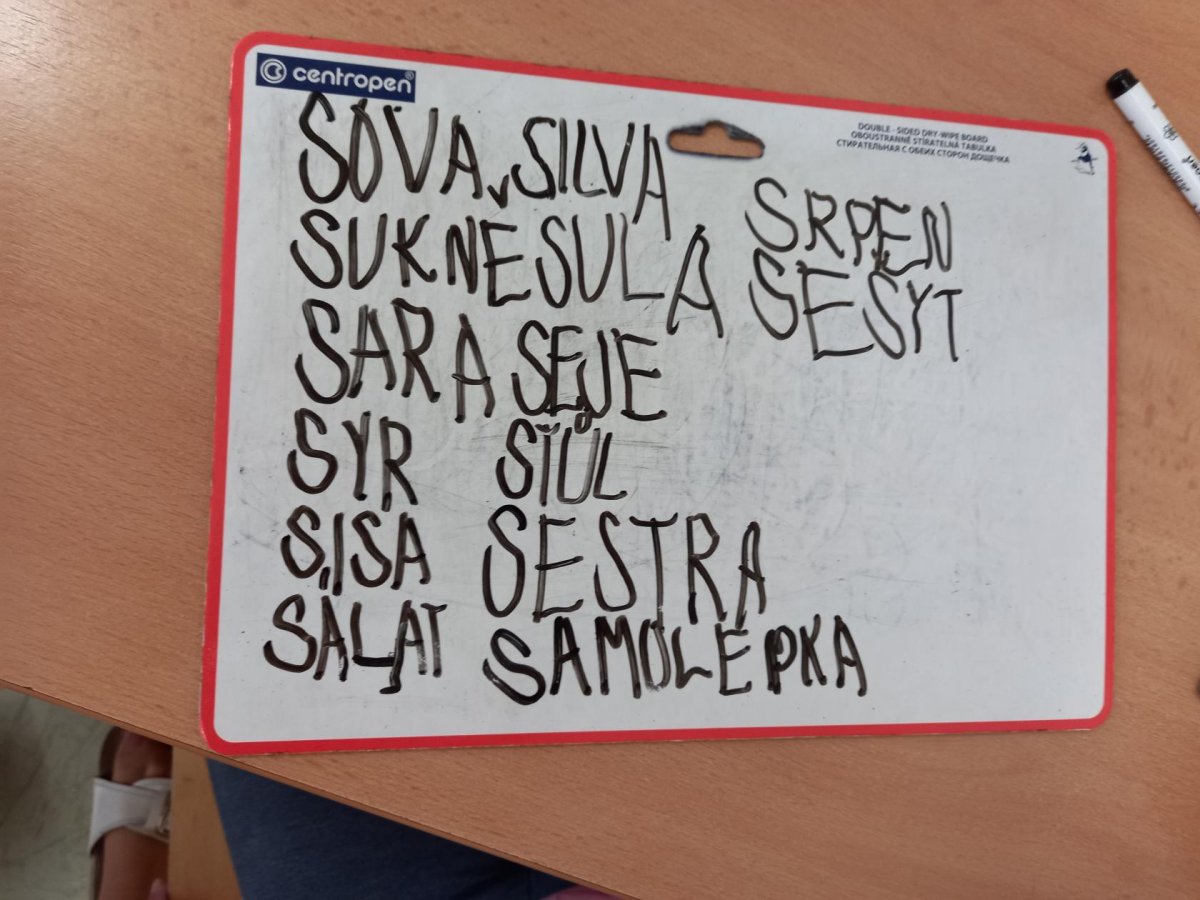 centropen®
DOUBLE - SIDED DRY-WIPE BOARD
OBOUSTRANNĚ STÍRATELNÁ TABULKA
СТИРАТЕЛЬНАЯ С ОБЕИХ СТОРОН ДОЩЕЧКА
SOVA SILVA
SUKNĚ SULA
SARA SEJE
SYR SǏŮL
SISA SESTRA
SÁLAT SAMOLEPKA
SRPEN
SEŠYT